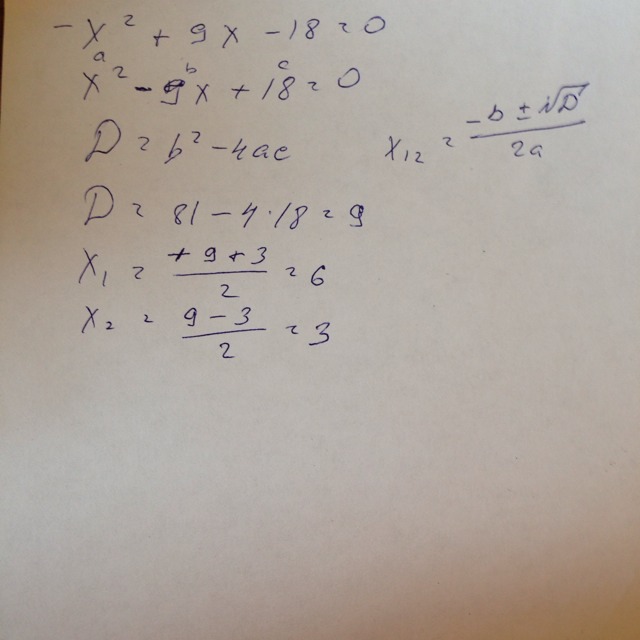 -x² + 9x - 18 = 0
a b c
x² - 9x + 18 = 0
D = b² - 4ac
x₁₂ = (-b ± √D) / 2a
D = 81 - 4·18 = 9
x₁ = (+9 + 3) / 2 = 6
x₂ = (9 - 3) / 2 = 3